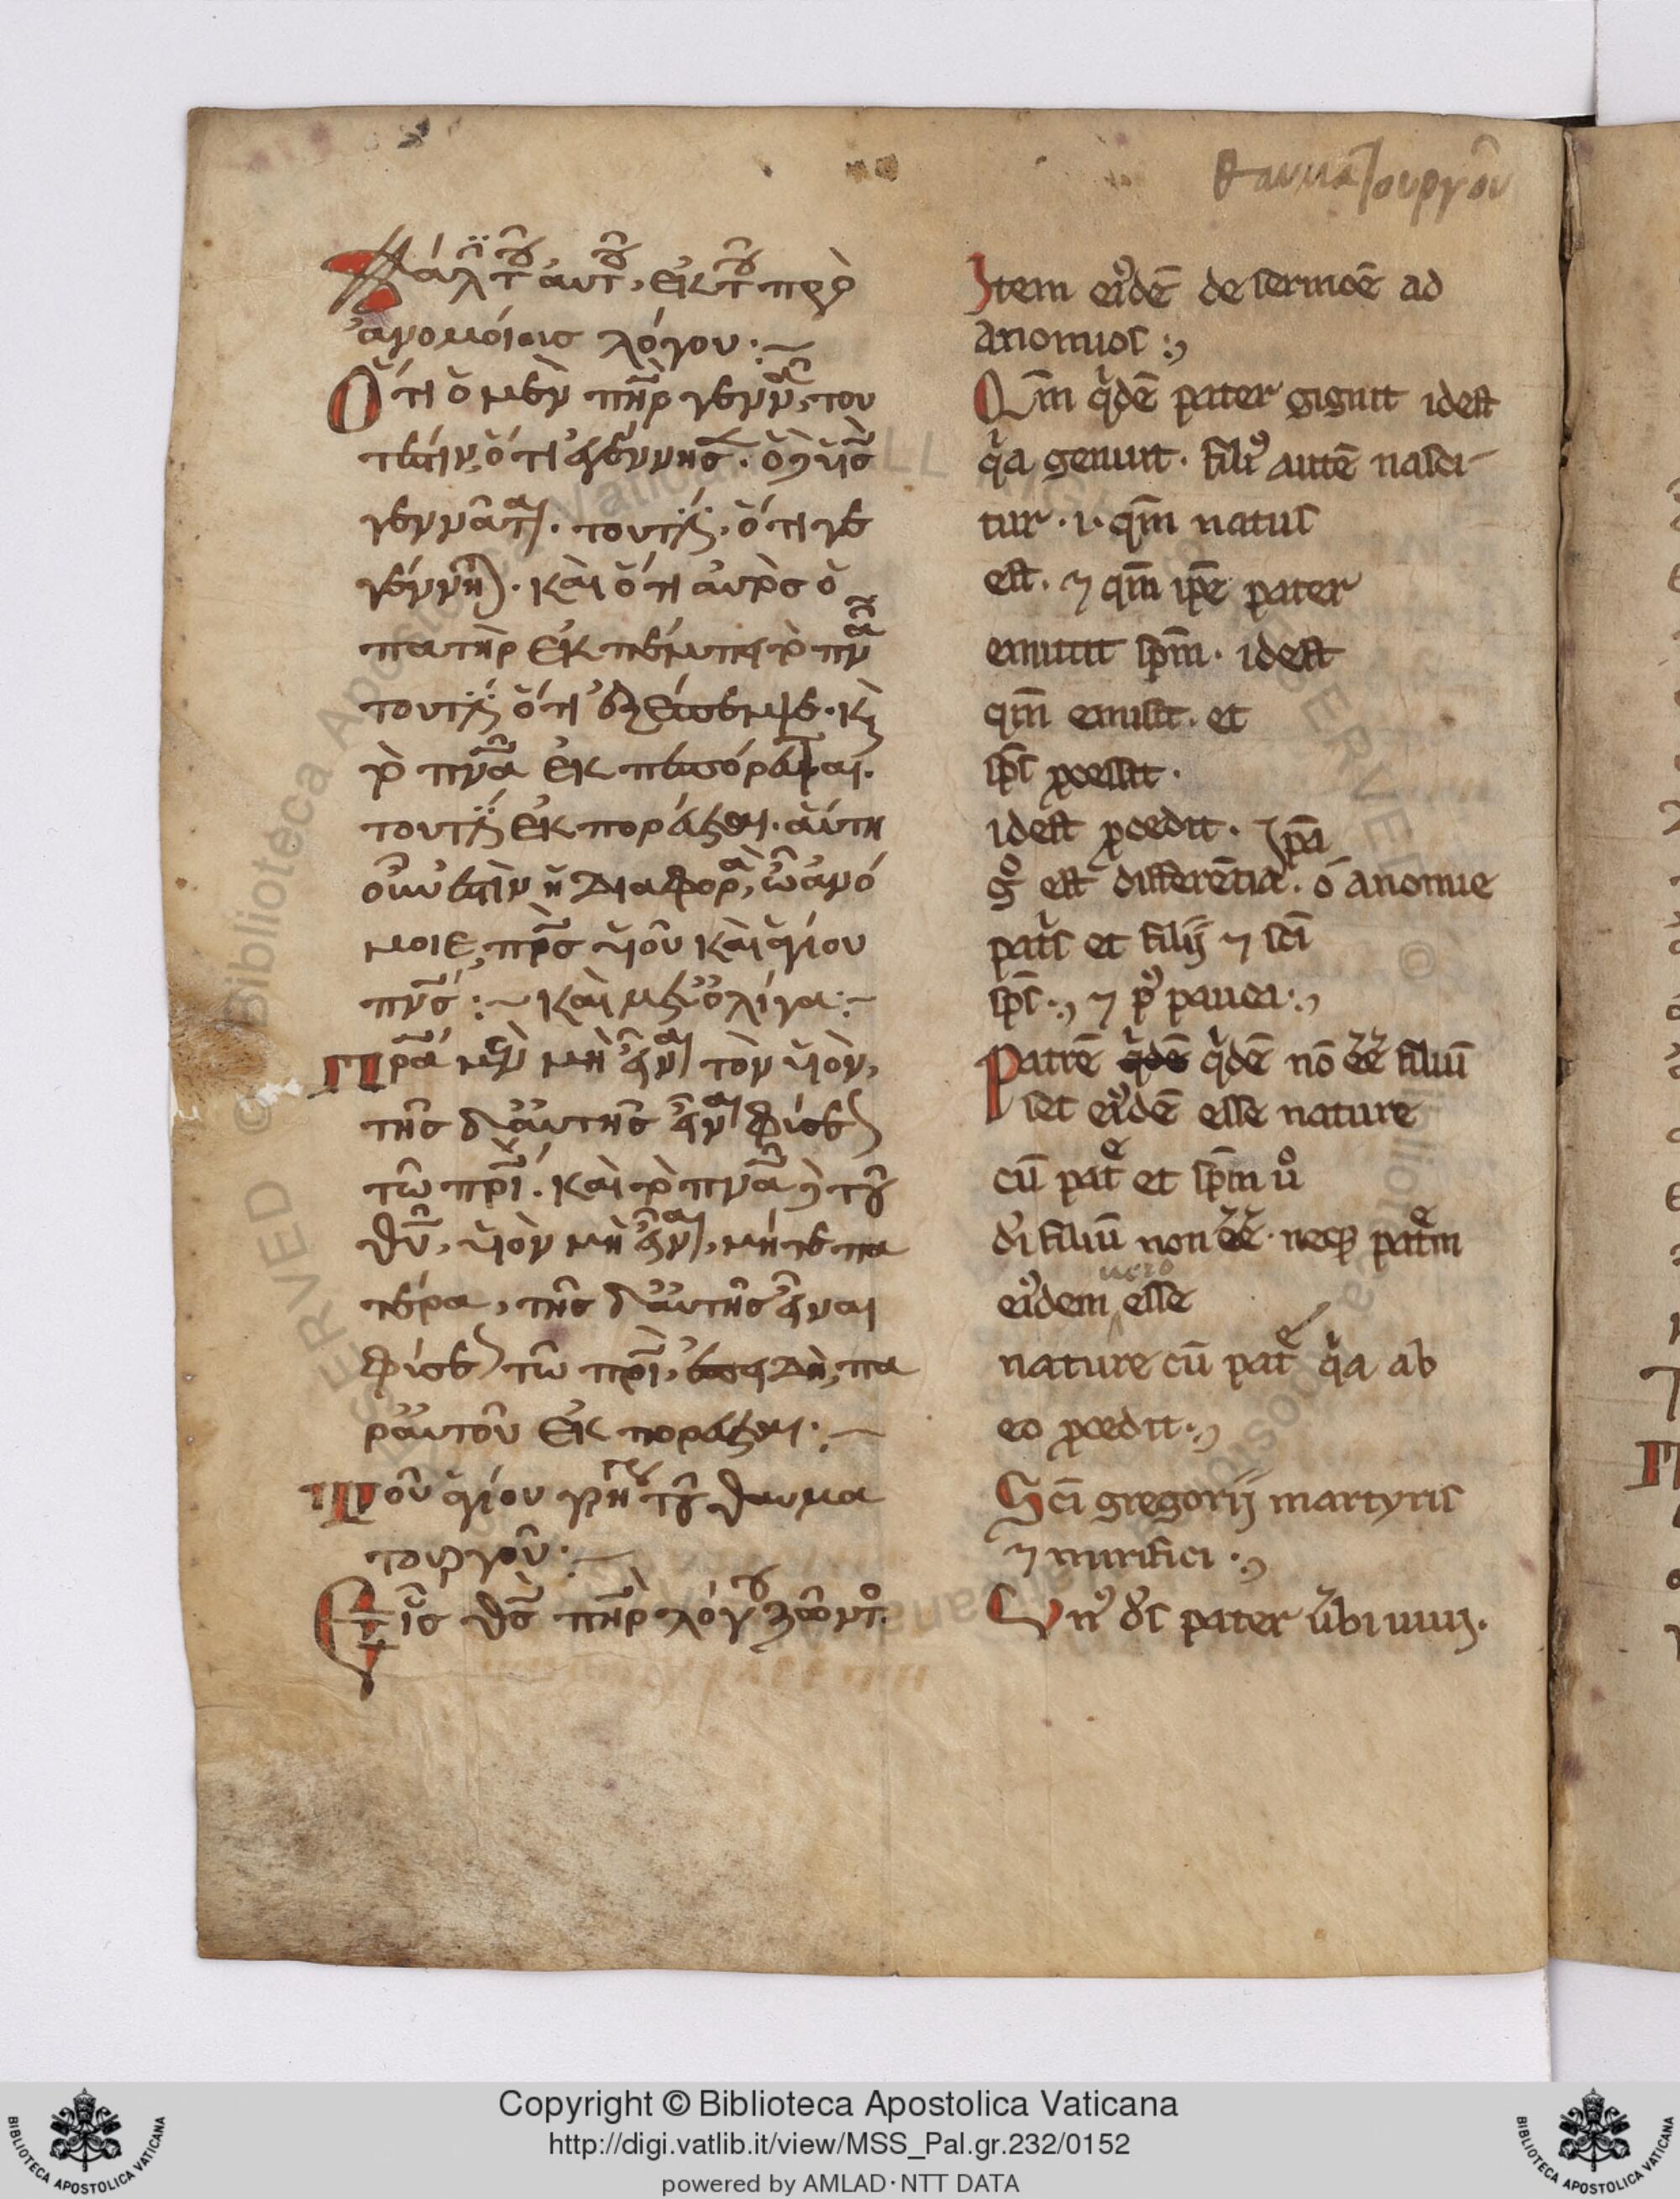 θαυματουργοῦ
Πάλιν τοῦ αὐτοῦ, ἐκ τοῦ πρὸ
ἀνομοίοις λόγου :~
Ὅτι ὁ μὲν πηρ γεννᾶ, του
τέστιν, ὅτι ἐγέννησε. ὁ δὲ υἱσ
γεννᾶται. τουτέστιν, ὅτι γε
γέννηται. καὶ ὅτι αὐτὸσ ὁ
πατὴρ ἐκπέμπει τὸ πνα
τουτέστιν ὅτι
τὸ πνα ἐκπεπόρευται.
τουτέστιν ἐκπορεύεται. αὕτη
οὖν ἐστὶν ἡ διαφορὰ, ὦ ἀνό
μοιε, πρσ υἱοῦ καὶ ἁγίου
πνσ :~ καὶ μετ' ὀλίγα :~
πρα μὲν μὴ εἶναι τὸν υἱὸν,
τῆσ δ' αὐτῆσ εἶναι φύσεωσ
τῶ πρι. καὶ τὸ πνα δὲ τοῦ
θυ, υἱὸν μὴ εἶναι, μήτε πα
τέρα, τῆσ δ' αὐτῆσ εἶναι
φύσεωσ τῶ πρι, ἐπειδὴ, πα
ρ' αὐτοῦ ἐκπορεύεται :~
τοῦ ἁγίου γρη τοῦ θαυμα
τουργοῦ :~
Εἷσ θσ πηρ λόγου ζῶντο.
Item eiꝰdē de sermōe ad
anomios :,
Qm̄ qͥdē pater gignit idest
qͥa genuit. filiꝰ autē nasci-
tur .i. qm̄ natus
est. ⁊ qm̄ ip̄e pater
emittit sp̄m. idest
qm̄ emisit. et
sp̄s ꝓcessit.
idest ꝓcedit. ip̄a
gͦ est differētia. o anomie
patͥs et filij ⁊ sc̄i
sp̄s :, ⁊ pꝰ pauca :,
Patrē qͥdē qͥdē nō ēē filiū
set eiꝰdē esse nature
cū patͤ et sp̄m uͦ
di filiū non ēē. neqꝫ patͤm
eiꝰdem uero esse
nature cū patͤ qͥa ab
eo ꝓcedit :,
Sc̄i gregorij martyris
⁊ mirifici :,
Unꝰ ds pater ūbi uiui.
Copyright © Biblioteca Apostolica Vaticana
http://digi.vatlib.it/view/MSS_Pal.gr.232/0152
powered by AMLAD·NTT DATA
BIBLIOTECA APOSTOLICA VATICANA
BIBLIOTECA APOSTOLICA VATICANA